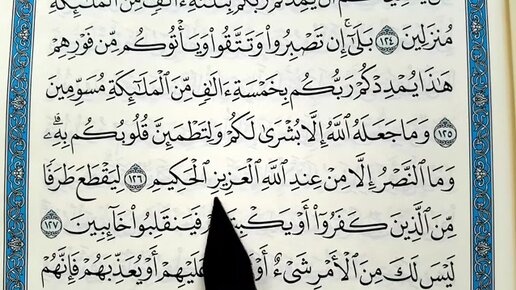 يُمِدَّكُمْ رَبُّكُم بِثَلَٰثَةِ ءَالَٰفٍ مِّنَ ٱلْمَلَٰٓئِكَةِ
مُنزَلِينَ ١٢٤ بَلَىٰٓ إِن تَصْبِرُوا۟ وَتَتَّقُوا۟ وَيَأْتُوكُم مِّن فَوْرِهِمْ
هَٰذَا يُمْدِدْكُمْ رَبُّكُم بِخَمْسَةِ ءَالَٰفٍ مِّنَ ٱلْمَلَٰٓئِكَةِ مُسَوِّمِينَ
١٢٥ وَمَا جَعَلَهُ ٱللَّهُ إِلَّا بُشْرَىٰ لَكُمْ وَلِتَطْمَئِنَّ قُلُوبُكُم بِهِۦۗ
وَمَا ٱلنَّصْرُ إِلَّا مِنْ عِندِ ٱللَّهِ ٱلْعَزِيزِ ٱلْحَكِيمِ ١٢٦ لِيَقْطَعَ طَرَفًا
مِّنَ ٱلَّذِينَ كَفَرُوٓا۟ أَوْ فَيَنقَلِبُوا۟ خَآئِبِينَ ١٢٧
لَيْسَ لَكَ مِنَ ٱلْأَمْرِ شَىْءٌ أَوْ عَلَيْهِمْ أَوْ يُعَذِّبَهُمْ فَإِنَّهُمْ